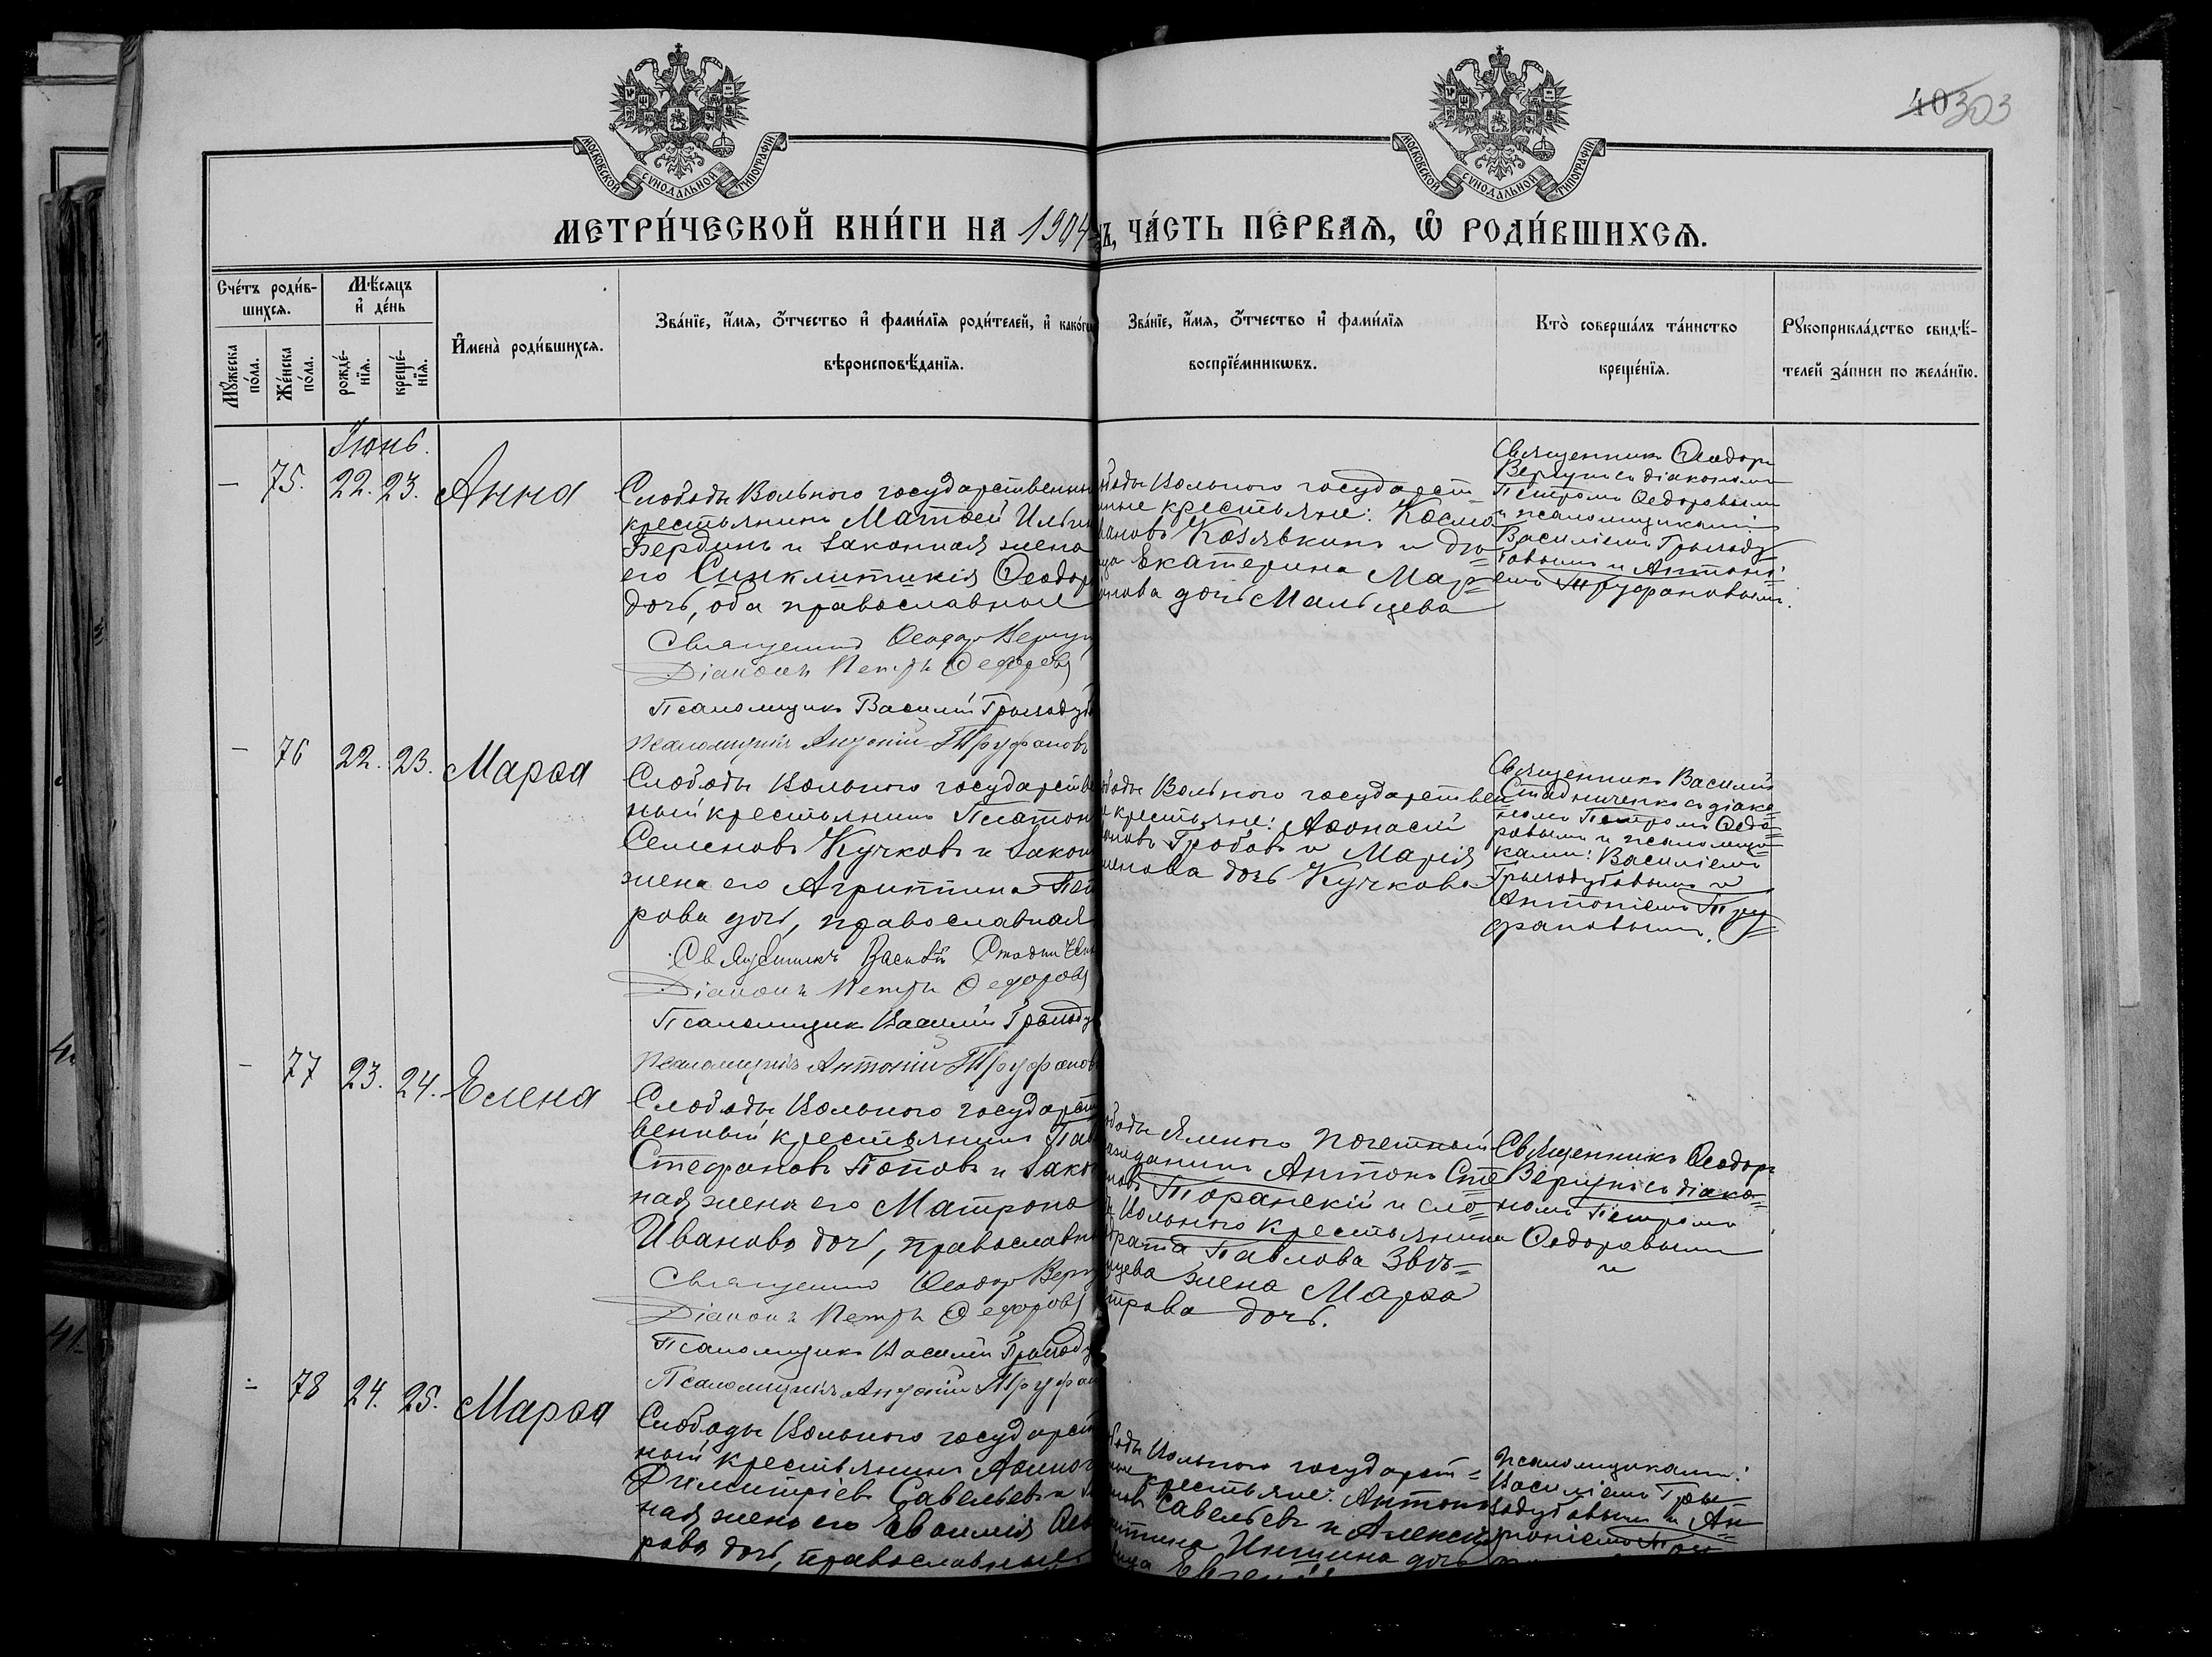 40 303
МОСКОВСКОЙ СѴНОДАЛЬНОЙ ТИПОГРАФІИ
МОСКОВСКОЙ СѴНОДАЛЬНОЙ ТИПОГРАФІИ
МЕТРИ́ЧЕСКОЙ КНИ́ГИ НА 1904 Ъ, ЧА́СТЬ ПЕ́РВАѦ, Ѡ҆ РОДИ́ВШИХСѦ.
Сче́тъ роди́в-
шихсѧ.
Мꙋ́жеска по́ла.
Же́нска по́ла.
Мѣ́сѧцъ
и҆ де́нь
рожде́-
нїѧ.
креще́-
нїѧ.
И҆мена̀ роди́вшихсѧ.
Зва́нїе, и҆́мѧ, ѻ҆́тчество и҆ фами́лїѧ роди́телей, и҆ како́гѡ
вѣроисповѣ́данїѧ.
Зва́нїе, и҆́мѧ, ѻ҆́тчество и҆ фами́лїѧ
воспрїе́мникѡвъ.
Кто̀ соверша́лъ та́инство
креще́нїѧ.
Рꙋкоприкла́дство свидѣ́-
телей за́писи по жела́нїю.
Іюнь.
— 75. 22. 23. Анна
Слободы Вольного государственн
крестьянинъ Матѳей Ильин
Бердинъ и законная жена
его Синклитикія Ѳеодор
дочь, оба православные
Священникъ Ѳеодоръ Вергун
Діаконъ Петръ Ѳедоровъ
Псаломщикъ Василій Грызоду
Псаломщикъ Антоній Труфановъ
боды Вольного государст=
нные крестьяне: Косма
вановъ Козявкинъ и дѣ=
ца Екатерина Мар=
нова дочь Мальцева
Священникъ Ѳеодоръ
Вергунъ съ діакономъ
Петромъ Ѳедоровымъ
и псаломщиками
Василіемъ Грызоду
бовымъ и Антоні=
емъ Труфановымъ.
— 76 22. 23. Марѳа
Слободы Вольного государстве
ный крестьянинъ Платон
Семеновъ Кучковъ и закон
жена его Агриппина Пет
рова дочь, православная
Священникъ Василій Стадниченко
Діаконъ Петръ Ѳедоровъ
Псаломщикъ Василій Грызоду
Псаломщикъ Антоній Труфанов
боды Вольного государствен
крестьяне: Аѳонасій
оновъ Гробовъ и Марія
менова дочь Кучкова
Священникъ Василій
Стадниченко съ діако=
номъ Петромъ Ѳедо=
ровымъ и псаломщи=
ками: Василіемъ
Грызодубовымъ и
Антоніемъ Тру=
фановымъ.
— 77 23. 24. Елена
Слободы Вольного государст
венный крестьянинъ Пав
Стефановъ Поповъ и зако
ная жена его Матрона
Иванова дочь, православн
Священникъ Ѳеодоръ Вергу
Діаконъ Петръ Ѳедоровъ
Псаломщикъ Василій Грызоду
Псаломщикъ Антоній Труфан
боды Ямного почетный
ажданинъ Антонъ Сте
новъ Торанскій и сло=
Вольного крестьянина
рата Павлова Звѣ=
цева жена Марѳа
трова дочь.
Священникъ Ѳеодоръ
Вергунъ съ діако=
номъ Петромъ
Ѳедоровымъ
и
— 78 24. 25. Марѳа
Слободы Вольного государст
ный крестьянинъ
Димитріевъ Савельевъ и
ная жена его Евѳимія Ѳео
рова дочь, православные
боды Вольного государст=
ные крестьяне: Антонъ
новъ Савельевъ и
Иншина дочь
псаломщиками:
Василіемъ Гры
зодубовымъ и Ан=
тоніемъ Тру